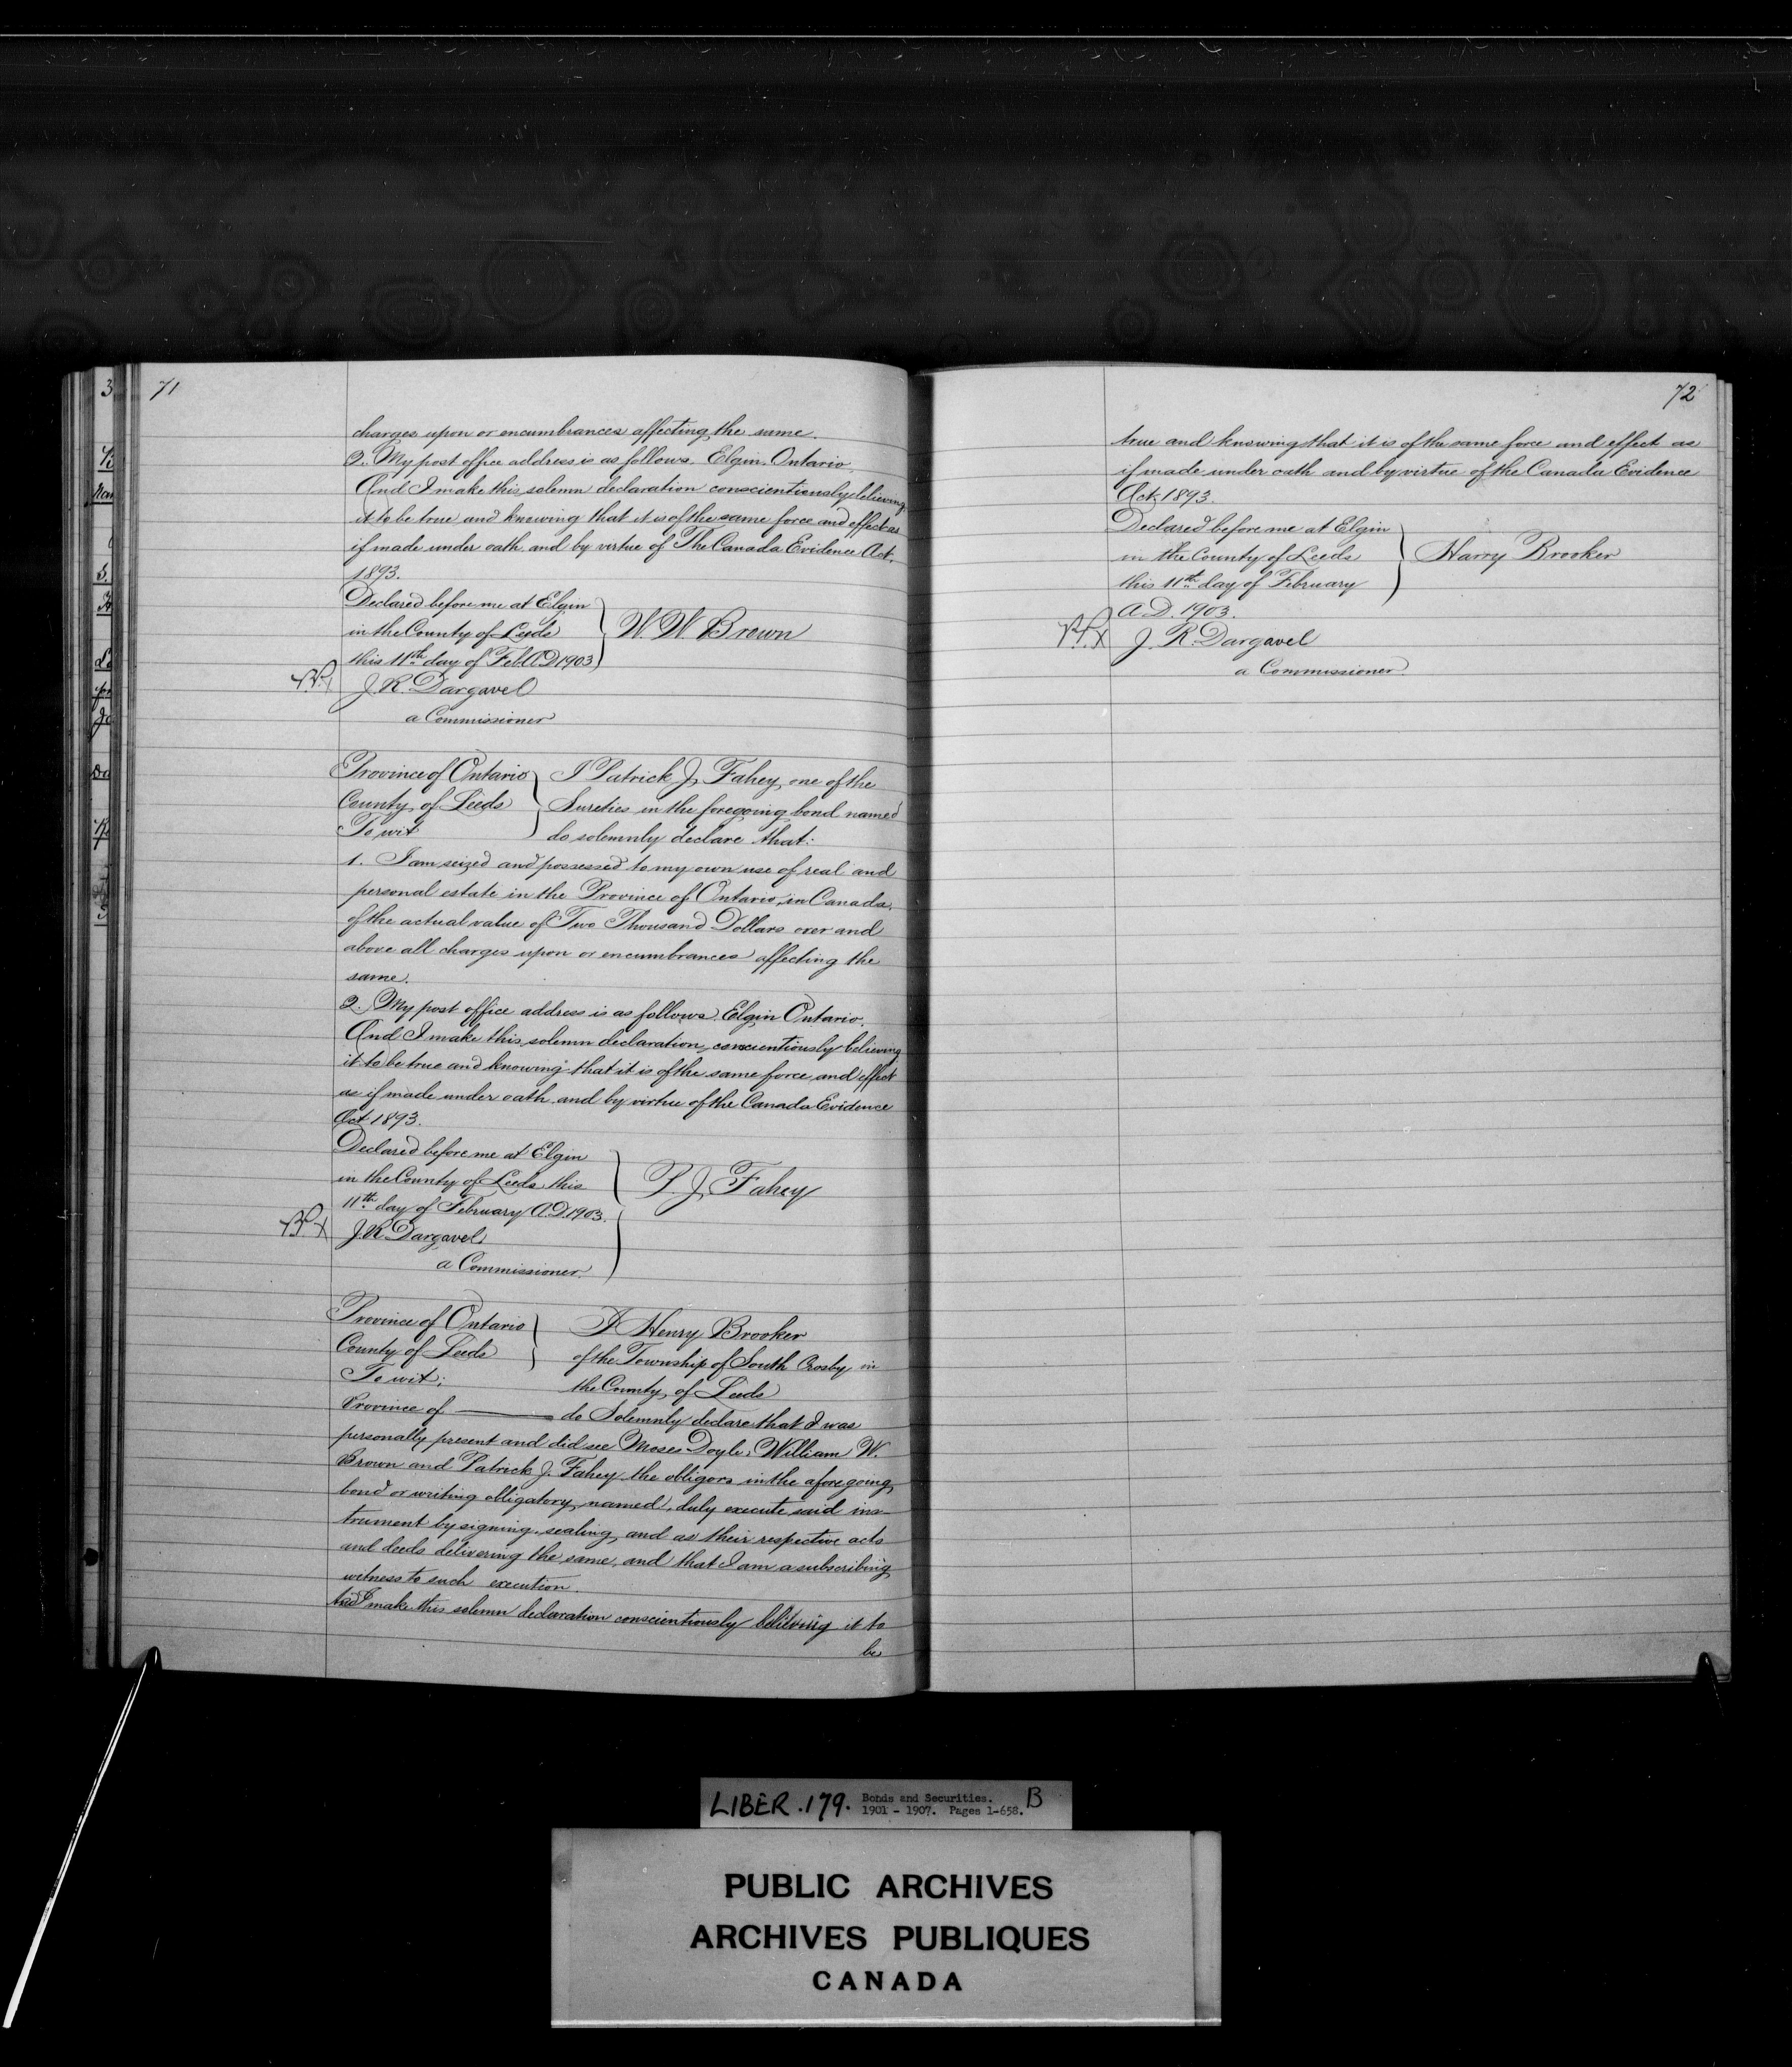 71
charges upon or encumbrances affecting the same.
2. My post office address is as follows. Elgin. Ontario.
And I make this solemn declaration conscientiously believing
it to be true and knowing that it is of the same force and effect as
if made under oath and by virtue of The Canada Evidence Act.
1893.
Declared before me at Elgin
in the County of Leeds
this 11th day of Feb. A.D 1903
W W Brown
J. R. Dargavel
a Commissioner
Province of Ontario
County of Leeds
To wit
I Patrick J. Fahey, one of the
Sureties in the foregoing bond named
do solemnly declare that:
1. I am seized and possessed to my own use of real and
personal estate in the Province of Ontario, in Canada,
of the actual value of Two Thousand Dollars over and
above all charges upon or encumbrances affecting the
same.
2. My post office address is as follows. Elgin Ontario.
And I make this solemn declaration, conscientiously believing
it to be true and knowing that it is of the same force and effect
as if made under oath and by virtue of the Canada Evidence
Act 1893.
Declared before me at Elgin
in the County of Leeds this
11th day of February A.D. 1903.
P. J. Fahey
J. R. Dargavel
a Commissioner.
Province of Ontario
County of Leeds
To wit:
I Henry Brooker
of the Township of South Crosby in
the County of Leeds
Province of ——— do Solemnly declare that I was
personally present and did see Moses Doyle, William W.
Brown and Patrick J. Fahey the obligors in the aforegoing
bond or writing obligatory named, duly execute said ins-
trument by signing, sealing, and as their respective acts
and deeds delivering the same, and that I am a subscribing
witness to such execution.
And I make this solemn declaration conscientiously believing it to
be
72
true and knowing that it is of the same force and effect as
if made under oath and by virtue of the Canada Evidence
Act 1893.
Declared before me at Elgin
in the County of Leeds
this 11th day of February
A.D. 1903.
Harry Brooker
J. R. Dargavel
a Commissioner.
LIBER .179. Bonds and Securities. B
1901 - 1907. Pages 1-658.
PUBLIC ARCHIVES
ARCHIVES PUBLIQUES
CANADA